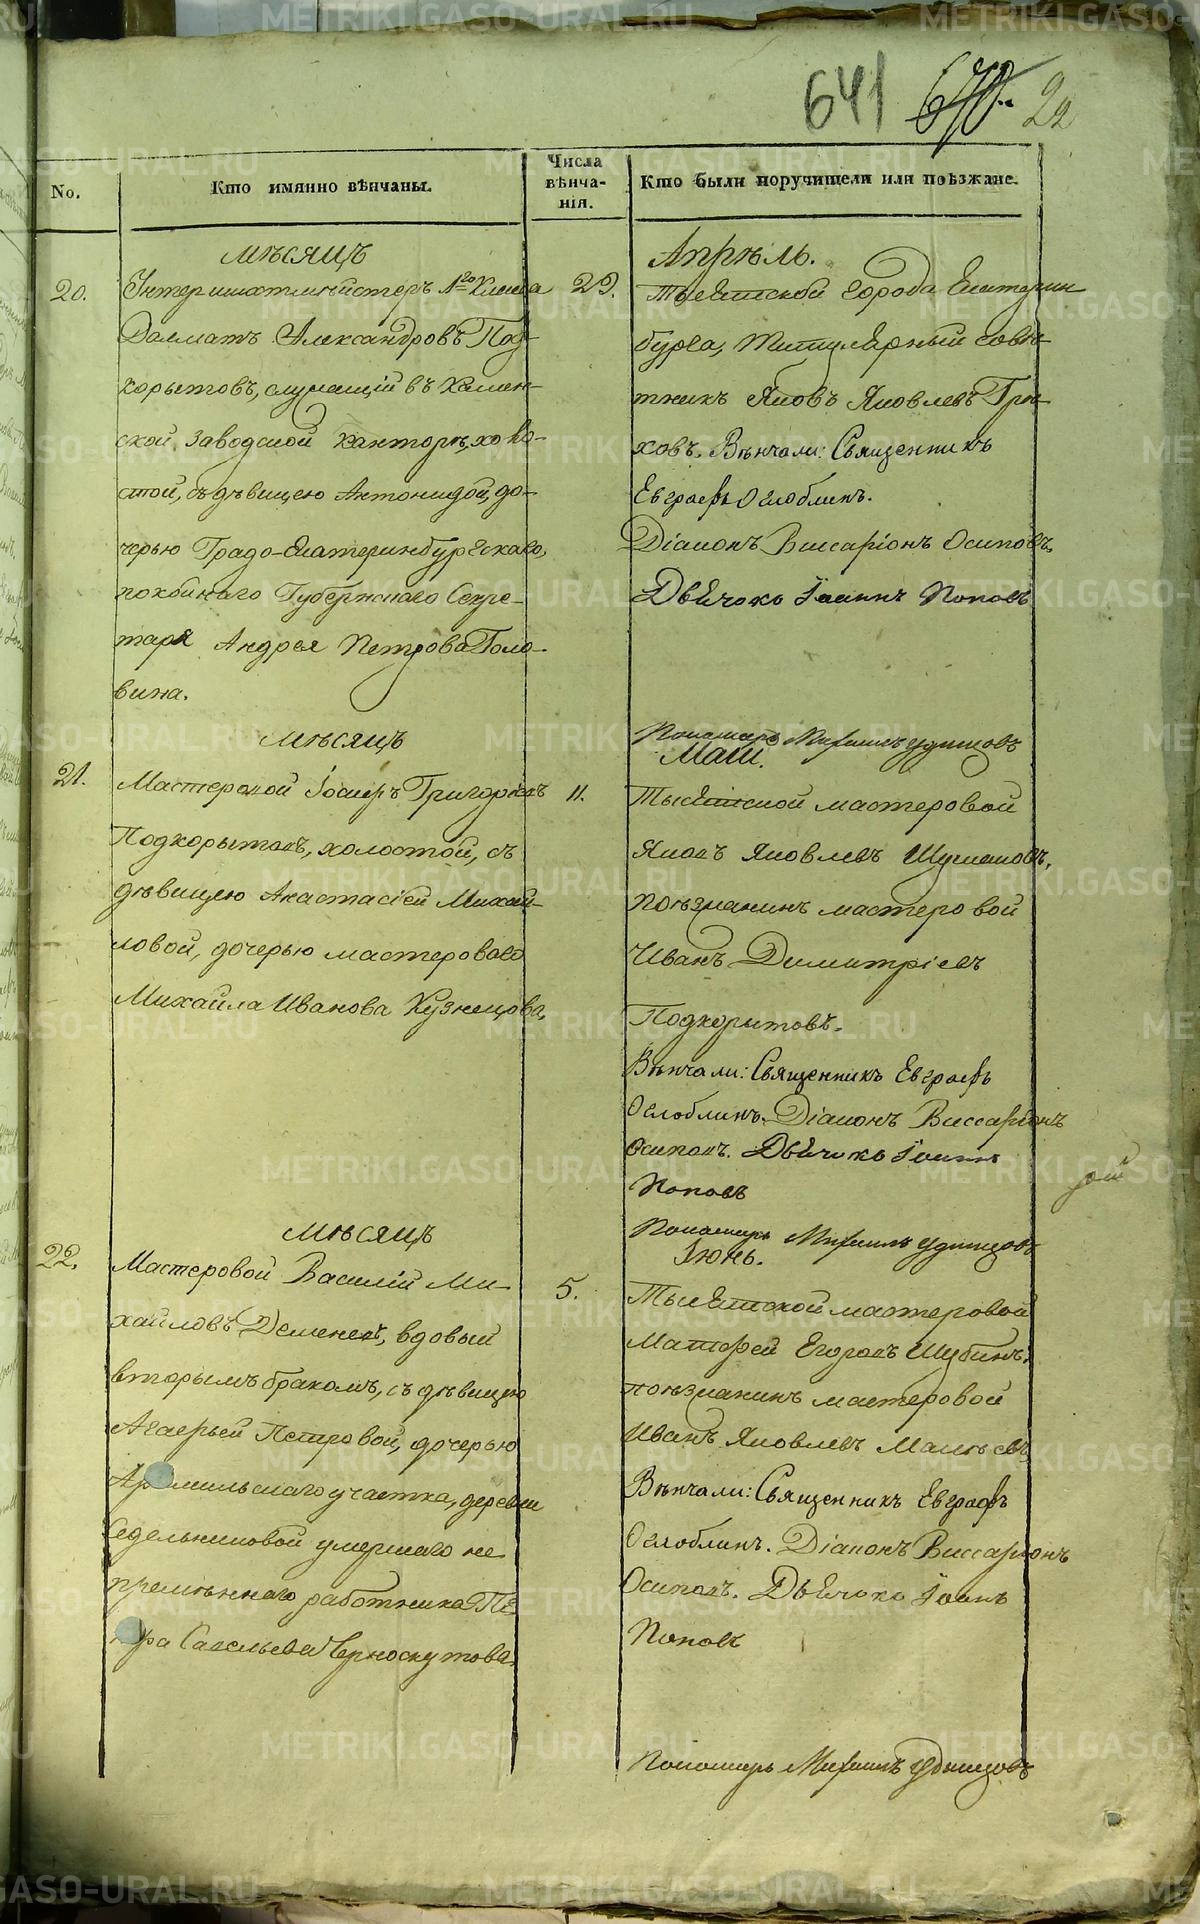 641 670. 22
No.
Кто имянно вѣнчаны.
Числа
вѣнча-
нія.
Кто были поручители или поѣзжане.
мѣсяцъ
Апрѣль.
20.
Унтершихтмейстеръ 1го Класса
Далматъ Александровъ Под-
корытовъ, служащій въ Камен-
ской Заводской Конторѣ, холо-
стой, съ дѣвицею Антонидой, до-
черью Градо-Екатеринбургскаго,
покойнаго Губернскаго Секре-
таря Андрея Петрова Голо-
вина.
29.
Тысяцской города Екатерин
бурга, Титулярный совѣ-
тникъ Яковъ Яковлевъ
Вѣнчали: Священникъ
Евграфъ Оглоблинъ.
Діаконъ Виссаріонъ Осиповъ.
Дьячокъ Іоаннъ Поповъ
Пономарь Михаилъ Удинцовъ
мѣсяцъ
Маій.
21.
Мастеровой Іосифъ Григорьевъ
Подкорытовъ, холостой, съ
дѣвицею Анастасіей Михай-
ловой, дочерью мастероваго
Михайла Иванова Кузнецова.
11.
Тысяцской мастеровой
Яковъ Яковлевъ
поѣзжанинъ мастеровой
Иванъ Димитріевъ
Подкорытовъ.
Вѣнчали: Священникъ Евграфъ
Оглоблинъ. Діаконъ Виссаріонъ
Осиповъ. Дьячокъ Іоаннъ
Поповъ
Пономарь Михаилъ Удинцовъ
мѣсяцъ
Іюнь.
22.
Мастеровой Василій Ми-
хайловъ Деменевъ, вдовый
вторымъ бракомъ, съ дѣвицею
Агафьей Петровой, дочерью
Арамильскаго участка, деревни
Седельниковой умершаго не-
премѣннаго работника Пе-
тра Савельева Черноскутова.
5.
Тысяцской мастеровой
Матфей Егоровъ Шубинъ.
поѣзжанинъ мастеровой
Иванъ Яковлевъ
Вѣнчали: Священникъ Евграфъ
Оглоблинъ. Діаконъ Виссаріонъ
Осиповъ. Дьячокъ Іоаннъ
Поповъ
Пономарь Михаилъ Удинцовъ
METRIKI.GASO-URAL.RU